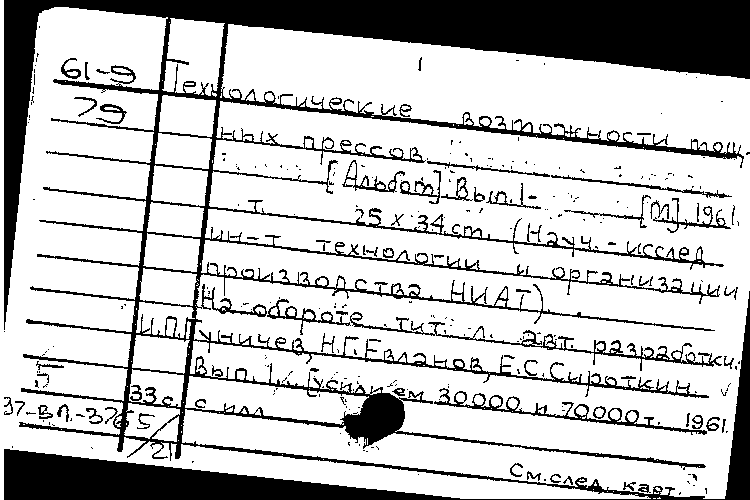 1
61-9 Технологические возможности мощ-
79 ных прессов
[Альбом] Вып. 1-
[М], 1961.
т. 25 x 34 cm. (Науч.-исслед
ин-т технологии и организации
производства. НИАТ).
На обороте тит. л. авт. разработки:
И.П. Гуничев, Н.Г. Евланов, Е.С. Сироткин.
Вып. 1. [усилием 30000 и 70000 т. 1961.
5 33 с. с илл
37-ВЛ.-376 5/21
См. след. карт.